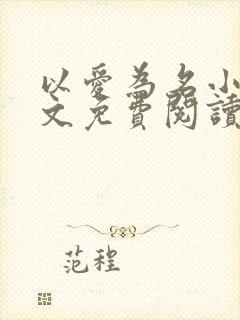 以愛為名小
文免費閱讀
范程